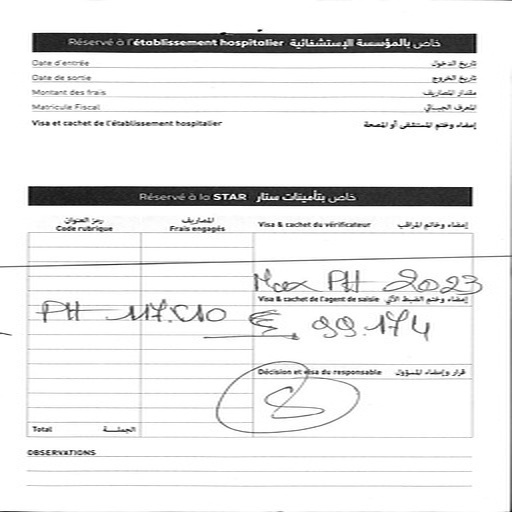 Réservé à l'établissement hospitalier خاص بالمؤسسة الإستشفائية
Date d'entrée تاريخ الدخول
Date de sortie تاريخ الخروج
Montant des frais مقدار المصاريف
Matricule Fiscal المعرف الجبائي
Visa et cachet de l'établissement hospitalier إمضاء وختم المستشفى أو المصحة
Réservé à la STAR خاص بتأمينات ستار
رمز العنوان المصاريف
Code rubrique Frais engagés Visa & cachet du vérificateur إمضاء وخاتم المراقب
Max PH 2023
Visa & cachet de l'agent de saisie إمضاء وختم الضبط الآلي
PH 117.510 99.174
Décision et visa du responsable قرار وإمضاء المسؤول
Total الجملــــة
OBSERVATIONS